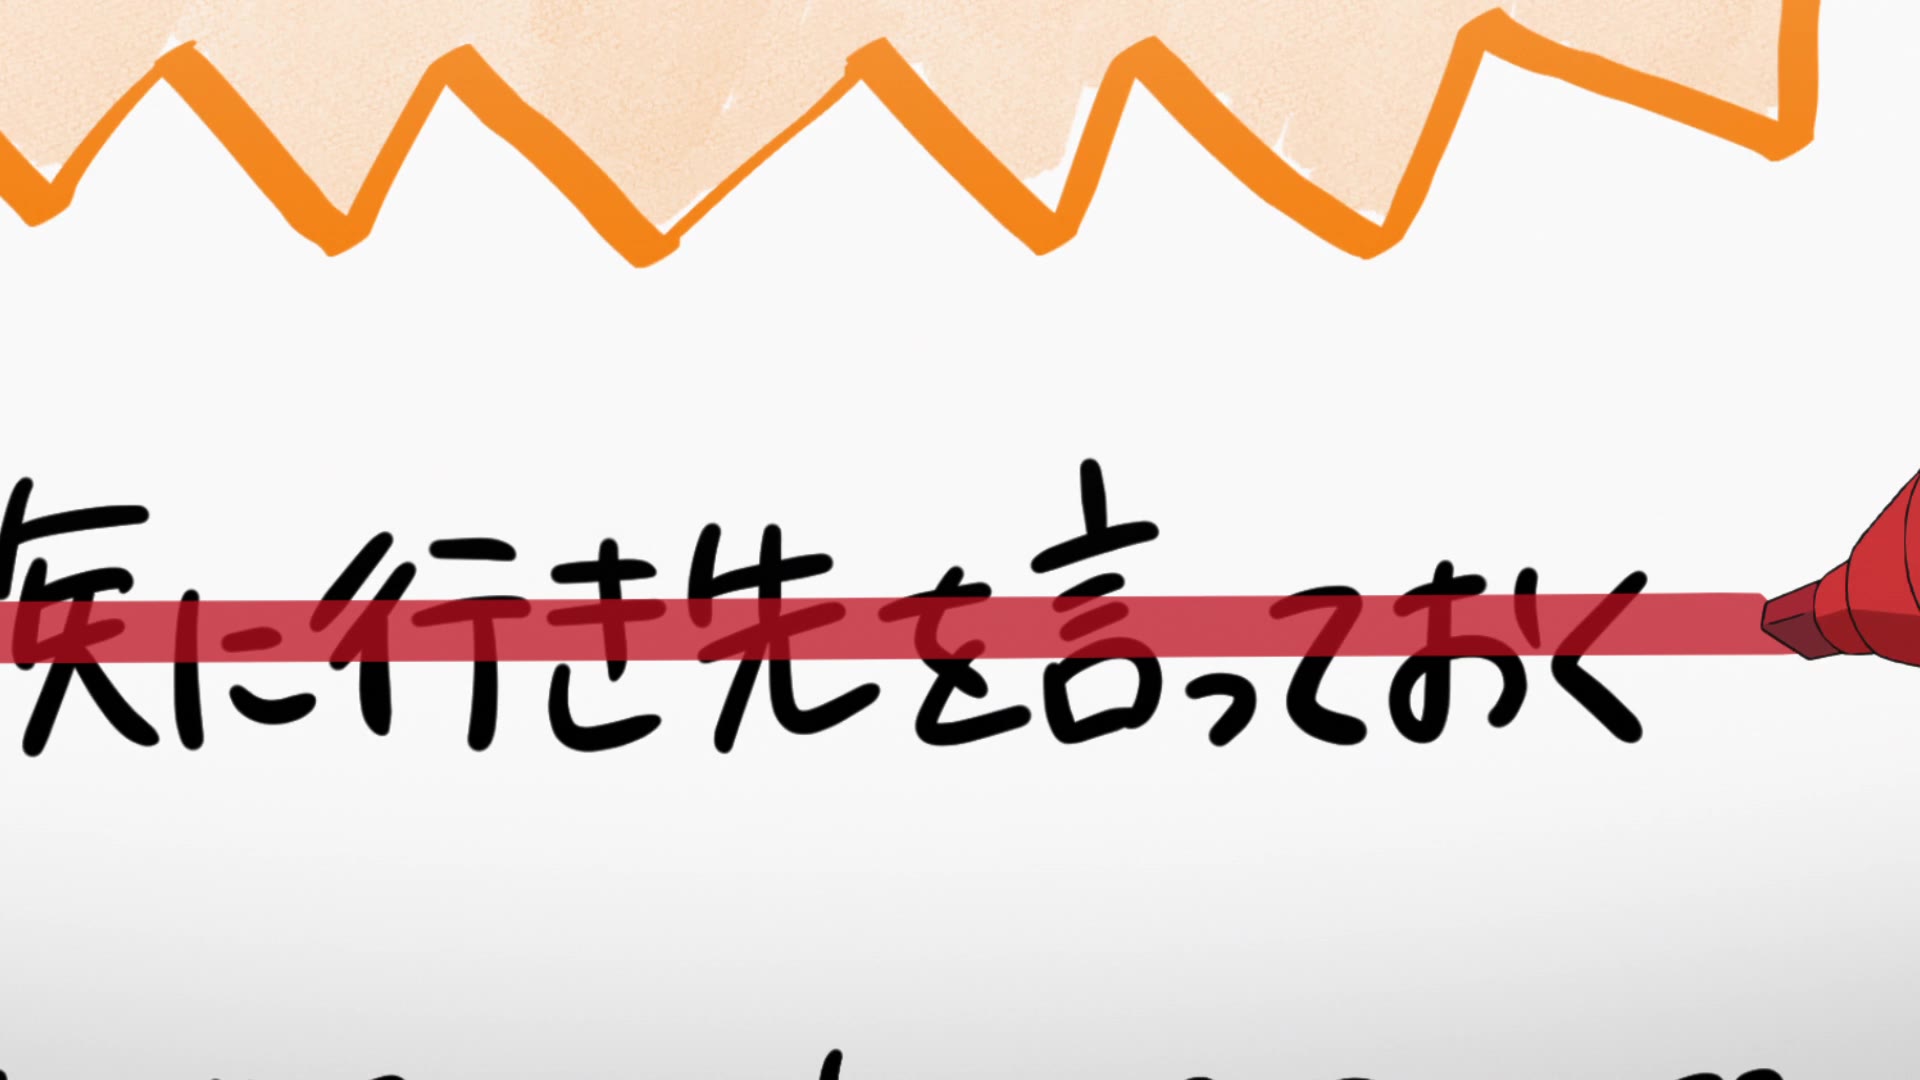 族に行き先を言っておく